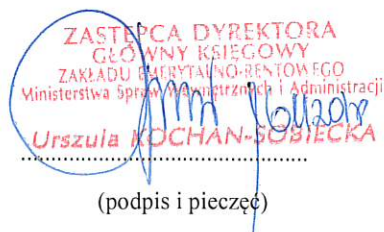 ZASTĘPCA DYREKTORA
GŁÓWNY KSIĘGOWY
ZAKŁADU EMERYTALNO-RENTOWEGO
Ministerstwa Spraw Wewnętrznych i Administracji
Urszula KOCHAN-SOBIECKA
(podpis i pieczęć)